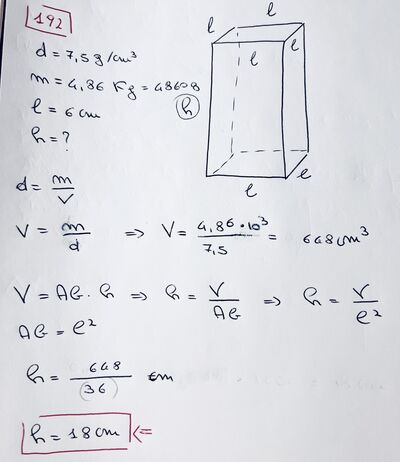 192
d = 7,5 g/cm³
m = 4,86 Kg = 4860g
l = 6 cm
h = ?
l
l
l
l
h
l
l
d = m/V
V = m/d ⇒ V = 4,86·10³/7,5 = 648 cm³
V = AB · h ⇒ h = V/AB ⇒ h = V/l²
AB = l²
h = 648/(36) cm
h = 18 cm ⇐